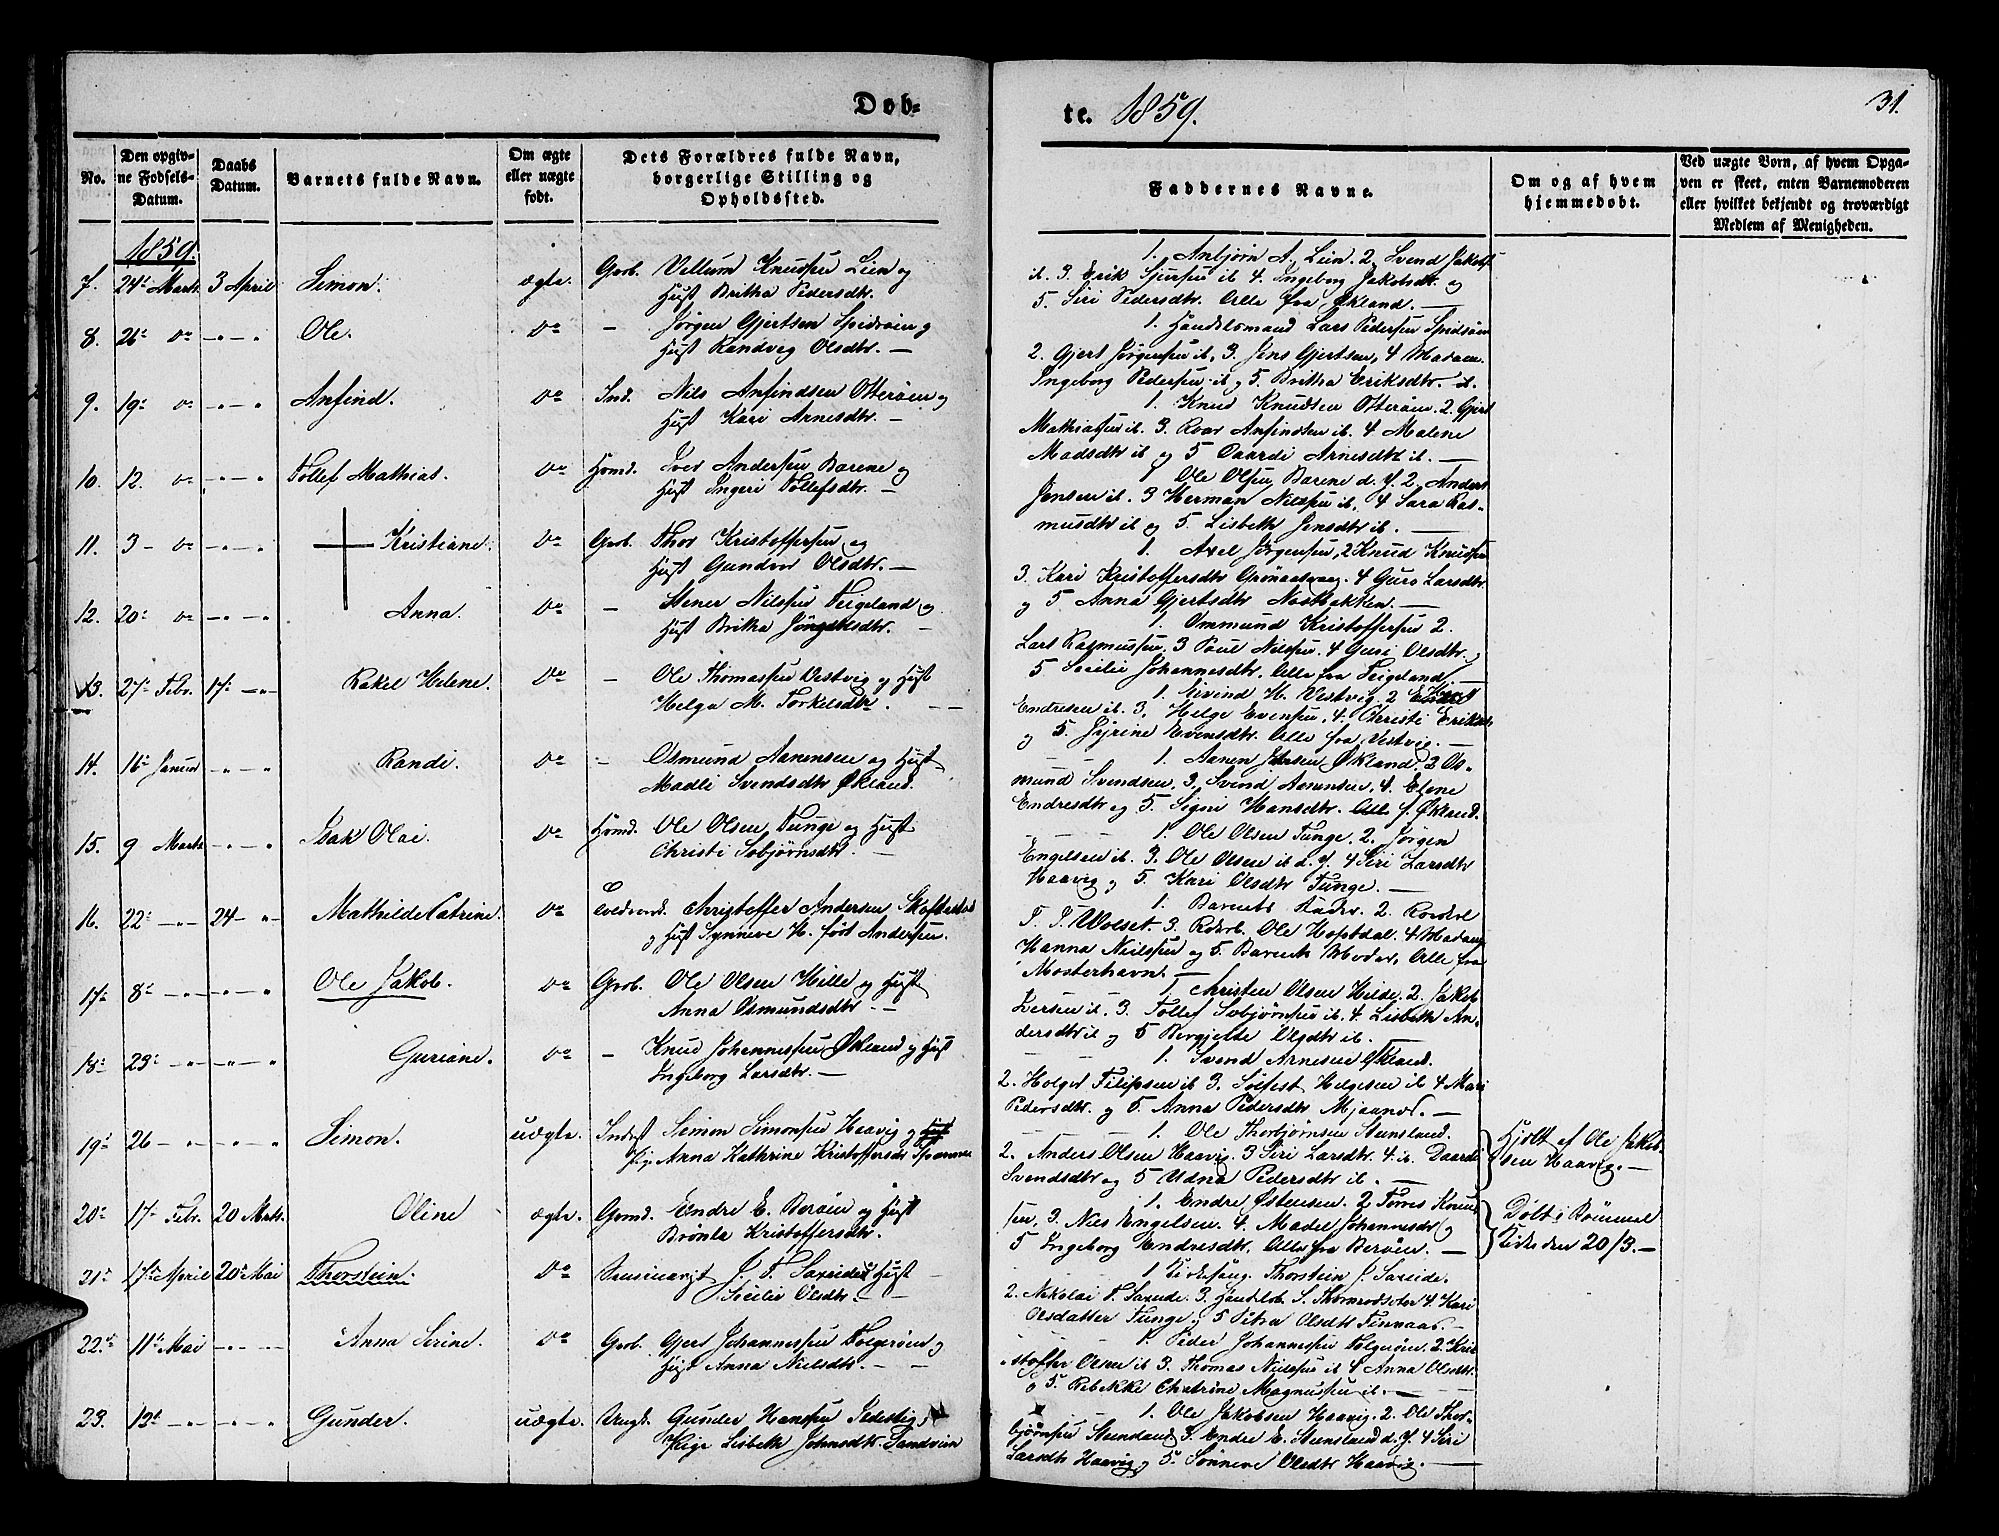 Døb-
te. 1859.
31.
No.
Den opgiv-
ne Fødsels-
Datum.
Daabs
Datum.
Barnets fulde Navn.
Om ægte
eller uægte
født.
Dets Forældres fulde Navn,
borgerlige Stilling og
Opholdssted.
Faddernes Navne.
Om og af hvem
hjemmedøbt.
Ved uægte Børn, af hvem Opga-
ven er skeet, enten Barnemoderen
eller hvilket bekjendt og troværdigt
Medlem af Menigheden.
1859.
7. 24 Marts 3 April Simon. ægte. Grdb. Villum Knudsen Lien og
Hust Britha Pedersdtr.
1. Anbjørn A. Lien. 2. Svend Jakobs
ib. 3. Erik Sjursen ib 4. Ingeborg Jakobsdtr. og
5. Siri Pedersdtr. Alle fra Økland.
8. 26 do Ole. do Jørgen Gjertsen og
Hust Randvig Olsdtr.
1. Handelsmand Lars Pedersen
2. Gjert Jørgensen ib, 3. Jens Gjertsen, 4 Madam
Ingeborg Pedersen ib og 5. Britha Eriksdtr. ib.
9. 19 do Anfind. do Ind. Nils Anfindsen Otterøen og
Hust Kari Arnesdtr.
1. Knud Knudsen Otterøen. 2. Gjert
Mathiassen ib. 3. Roar Anfindsen ib. 4. Malene
Madsdtr ib og 5 Daardi Arnesdtr ib.
10. 12. do Tollef Mathias. do Huusmd. Iver Andersen Barene og
Hust Ingeri Tollefsdtr.
1 Ole Olsen Barene d. y. 2. Anders
Jensen ib. 3 Herman Nilssen ib. 4 Sara Ras-
musdtr ib og 5. Lisbeth Jensdtr ib.
11. 3 do Kristiane. do Grdb. Thor Kristoffersen og
Hust Gundvor Olsdtr.
1. Axel Jørgensen, 2 Knud Knudsen
3. Kari Kristoffersdtr 4 Guro Larsdtr
og 5. Anna Gjertsdtr Nordbakken.
12. 20 do Anna. do Stener Nilssen Feigeland og
Hust Britha
1. Ommund Kristoffersen 2.
Lars Rasmussen, 3 Poul Nilssen. 4 Guri Olsdtr. og
5 Secilie Johannesdtr. Alle fra Feigeland.
13. 27 Febr. 17 Rakel Helene. do Ole Thomassen Vestvig og Hust
Helga M. Torkelsdtr.
1. Eivind H. Vestvig, 2
Endresen ib. 3. Helge Evensen. 4. Christi Eriksdtr
og 5. Evensdtr. Alle fra Vestvig.
14. 16 Januar Randi. do Osmund Aanensen og Hust
Madli Svendsdtr Økland.
1. Aanen Økland. 2 Os-
mund Svendsen. 3. Svend Aanensen, 4. Elene
Endresdtr og 5. Signi Hansdtr. Alle f. Økland.
15. 9 Marts Isak Olai. do Huusmd. Ole Olsen Tunge og Hust
Christi Sebjørnsdtr.
1. Ole Olsen Tunge. 2. Jørgen
Engelsen ib. 3. Ole Olsen ib d. y. 4 Siri Larsdtr
Haavig og 5. Kari Olsdtr Tunge.
16. 22 24 Mathilde Catrine. do Christoffer Andersen
og Hust Synneve H. født Andersen.
1. Barnets Fader. 2.
3. Ole Hopsdal. 4 Madam
Hanna Nielsen og 5. Barnets Moder. Alle fra
Mosterhavn.
17 8 Ole Jakob. do Grdb. Ole Olsen Hille og Hust
Anna Osmundsdtr.
1. Christen Olsen Hilde. 2. Jakob
Iversen ib. 3. Tollef Sebjørnsen ib. 4. Lisbeth An-
dersdtr ib og 5 Bergjelte Olsdtr ib.
18 23 Guriane. do Knud Johannessen Økland og Hust
Ingeborg Larsdtr.
1. Svend Arnesen Økland.
2. Holger Filipsen ib 3. Sølfest Helgesen ib 4 Mari
Pedersdtr. og 5. Anna Pedersdtr Mjaanes.
19 26 Simon. uægte. Inderst Simon Simonsen Haavig og
Pige Anna Kathrine Kristoffersdtr
1. Ole Thorbjørnsen Steensland.
2. Anders Olsen Haavig. 3 Siri Larsdtr. 4. ib. Daardi
Svendsdtr og 5 Udna Pedersdtr ib.
Hjdbt af Ole Jakob-
sen Haavig.
20 17 Febr. 20 Marts. Oline ægte. Endre E. Berøen og Hust
Brønla Kristoffersdtr.
1. Endre Østensen. 2 Torres Knud-
sen, 3. Nils Engelsen. 4. Madel Johannesdtr og
5 Ingeborg Endresdtr. Alle fra Berøen.
Døbt i Bømmel
Kirke den 20/3.
21 17 April 20 Mai Thorstein. do J. T. Sareide Hust
Secilie Olsdtr.
1 Thorstein J. Sareide.
2. Nikolai T. Sareide. 3. 4. Kari
Olsdatter Tunge og 5 Petra Olsdtr
22. 11 Mai Anna Serine. do Grdb. Gjert Johannessen Folgerøen og
Hust Anna Nielsdtr.
1. Peder Johannessen Folgerøen. 2. Kri-
stoffer Olsen ib 3. Thomas Nielsen ib 4 Anna Olsdtr.
og 5. Rebekke Chatrine Magnussen ib.
23. 12 Gunder. uægte. Ungk. Gunder Hanssen
Pige Lisbeth Johnsdtr. Sandvigen
1. Ole Jakobsen Haavig. 2. Ole Thor-
bjørnsen Steensland 3. Endre E. Steensland d. y. 4 Siri
Larsdtr Haavig og 5. Sønneve Olsdtr Haavig.